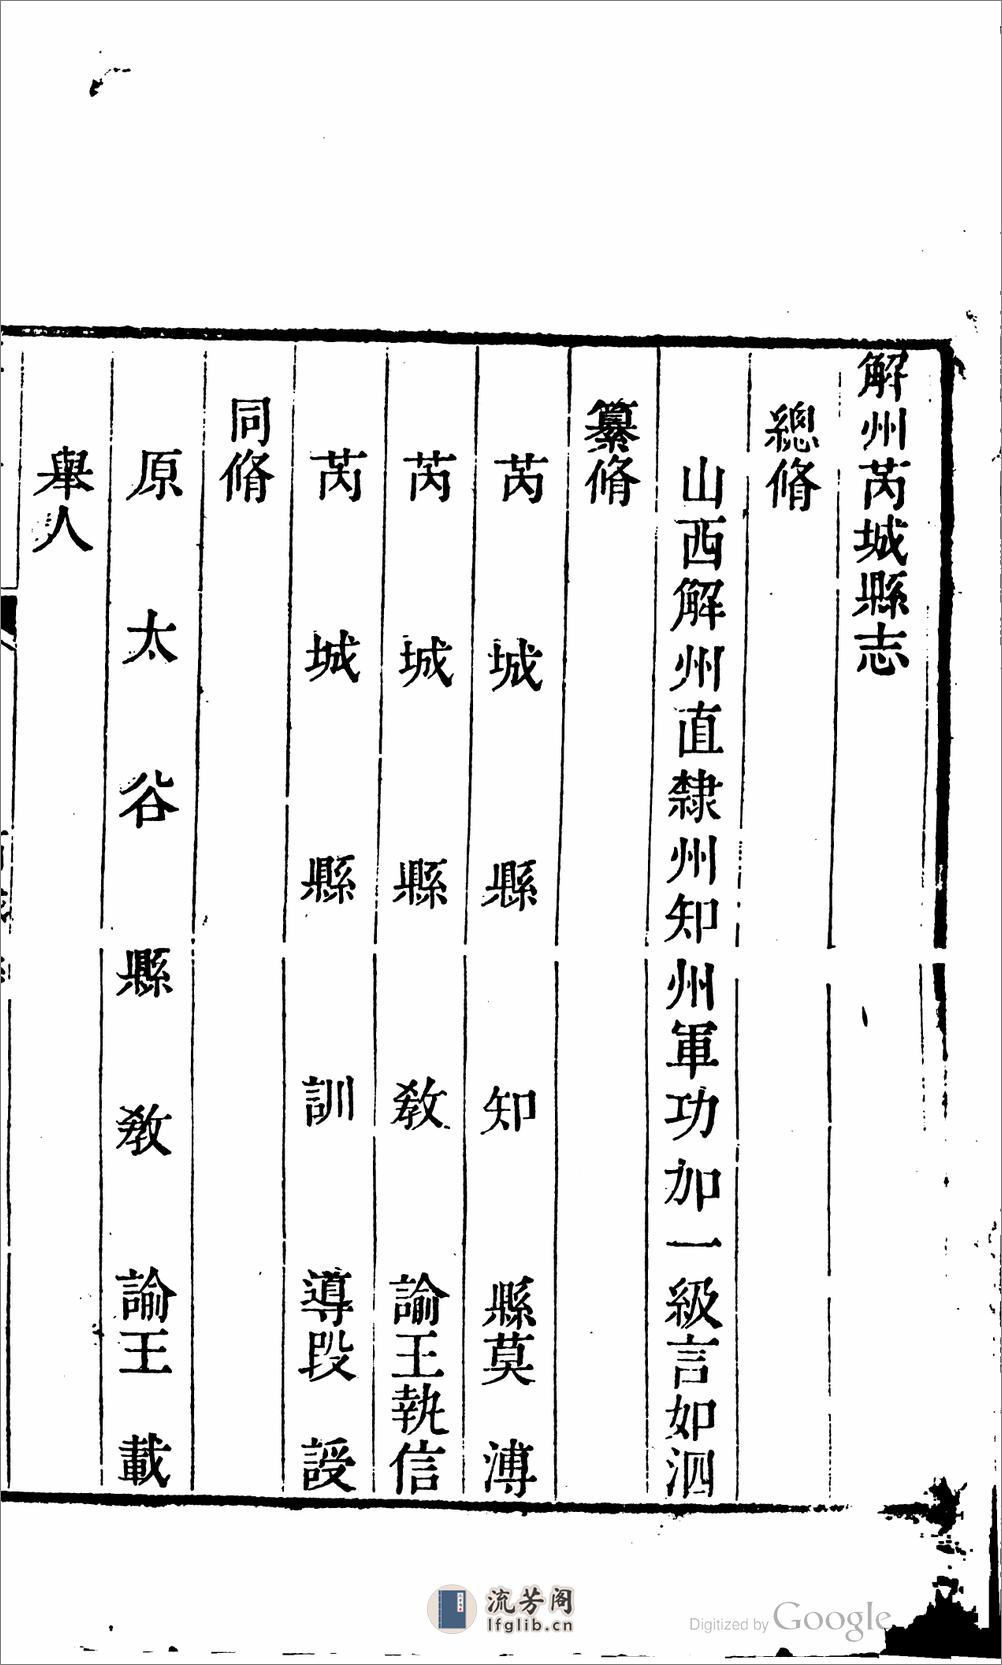 解州芮城縣志
總脩
山西解州直隸州知州軍功加一級言如泗
纂脩
芮城縣知縣莫溥
芮城縣教諭王執信
芮城縣訓導段謖
同脩
原太谷縣教諭王載
舉人
流芳阁
lfglib.cn
Digitized by Google